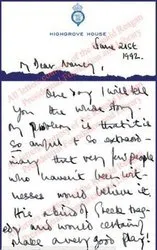 HIGHGROVE HOUSE
June 21st
1992.
My Dear Nancy,
One day I will tell
you the whole story.
My problem is that it is
so awful & so extraordi-
nary that very few people
who haven't been wit-
nesses would believe it.
It is a kind of Greek trage-
dy and would certainly
make a very good play!